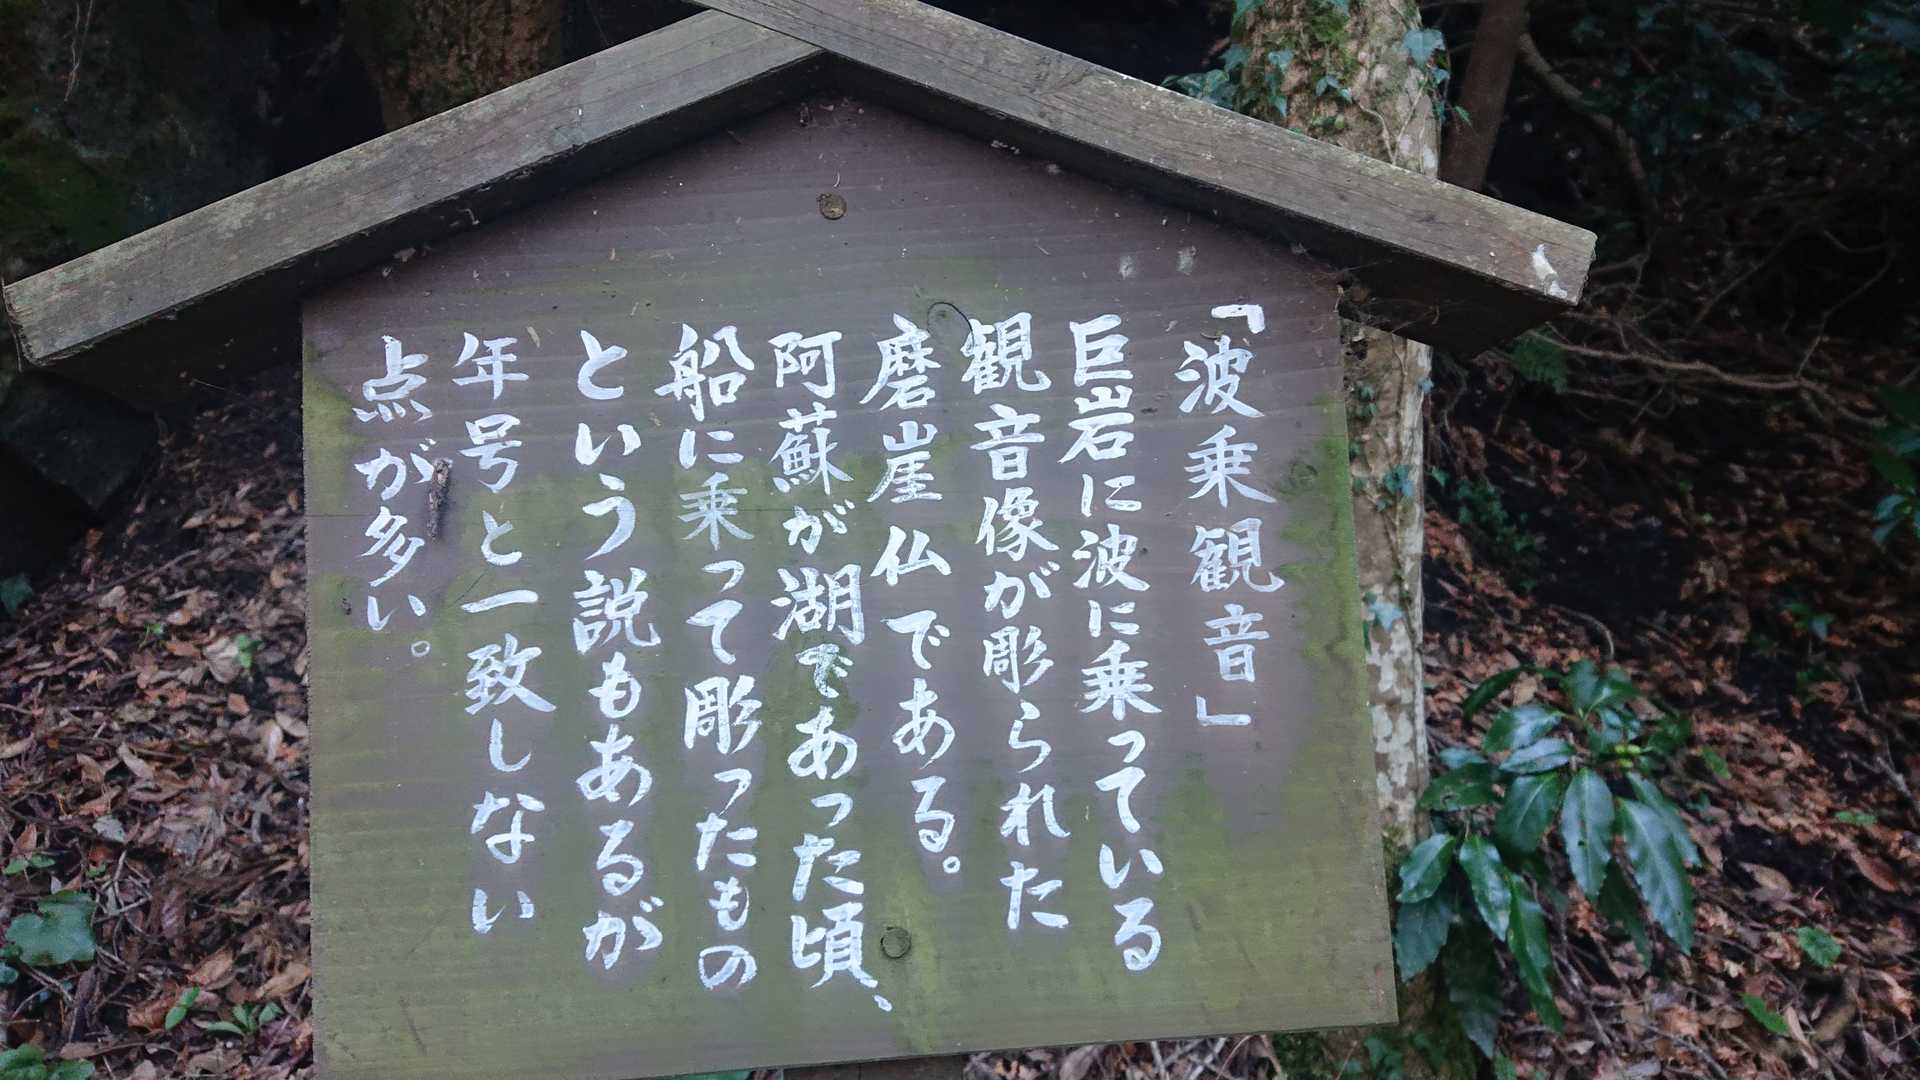 「波乗観音」
巨岩に波に乗っている
観音像が彫られた
磨崖仏である。
阿蘇が湖であった頃、
船に乗って彫ったもの
という説もあるが
年号と一致しない
点が多い。